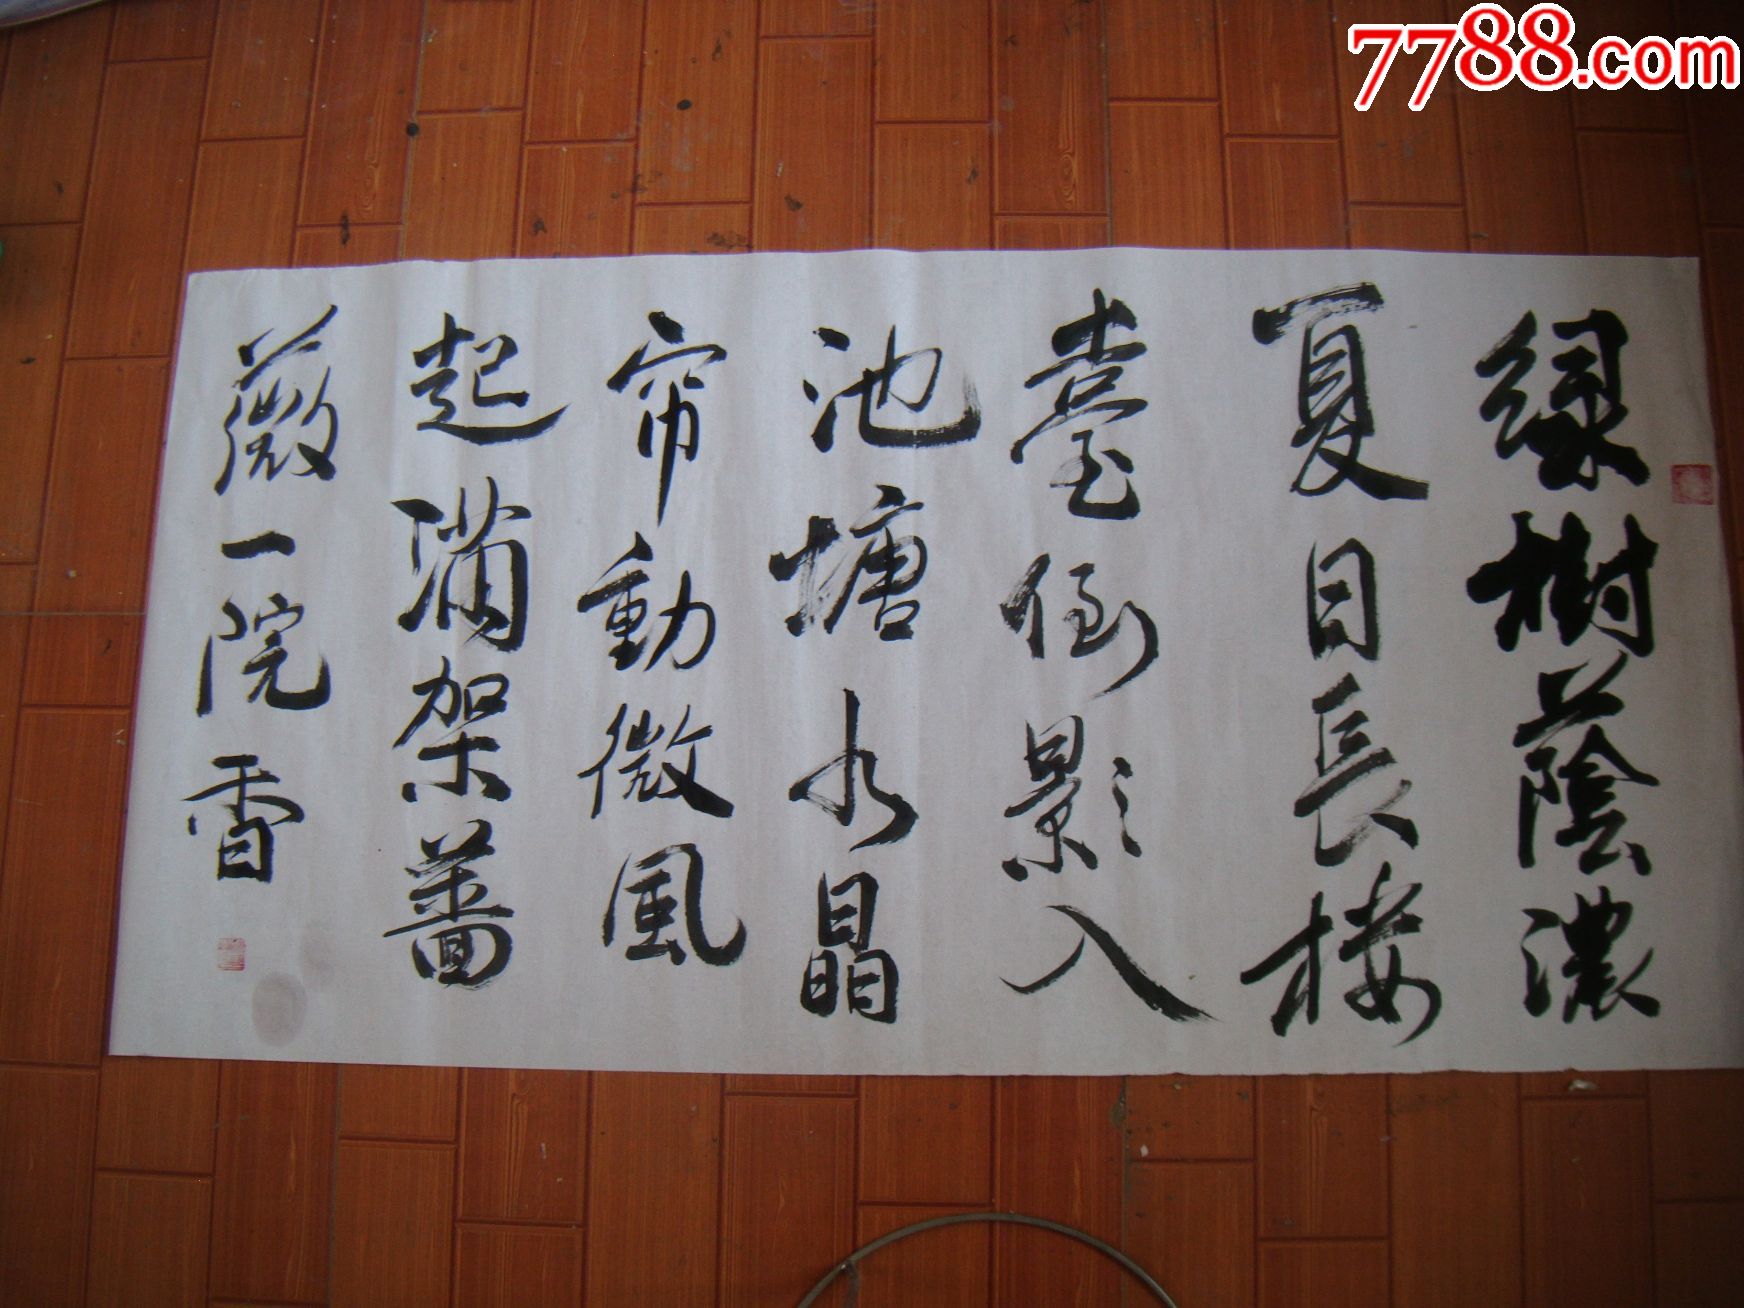 绿樹蔭濃
夏日長楼
臺倒影入
池塘水晶
帘動微風
起满架薔
薇一院香
7788.com